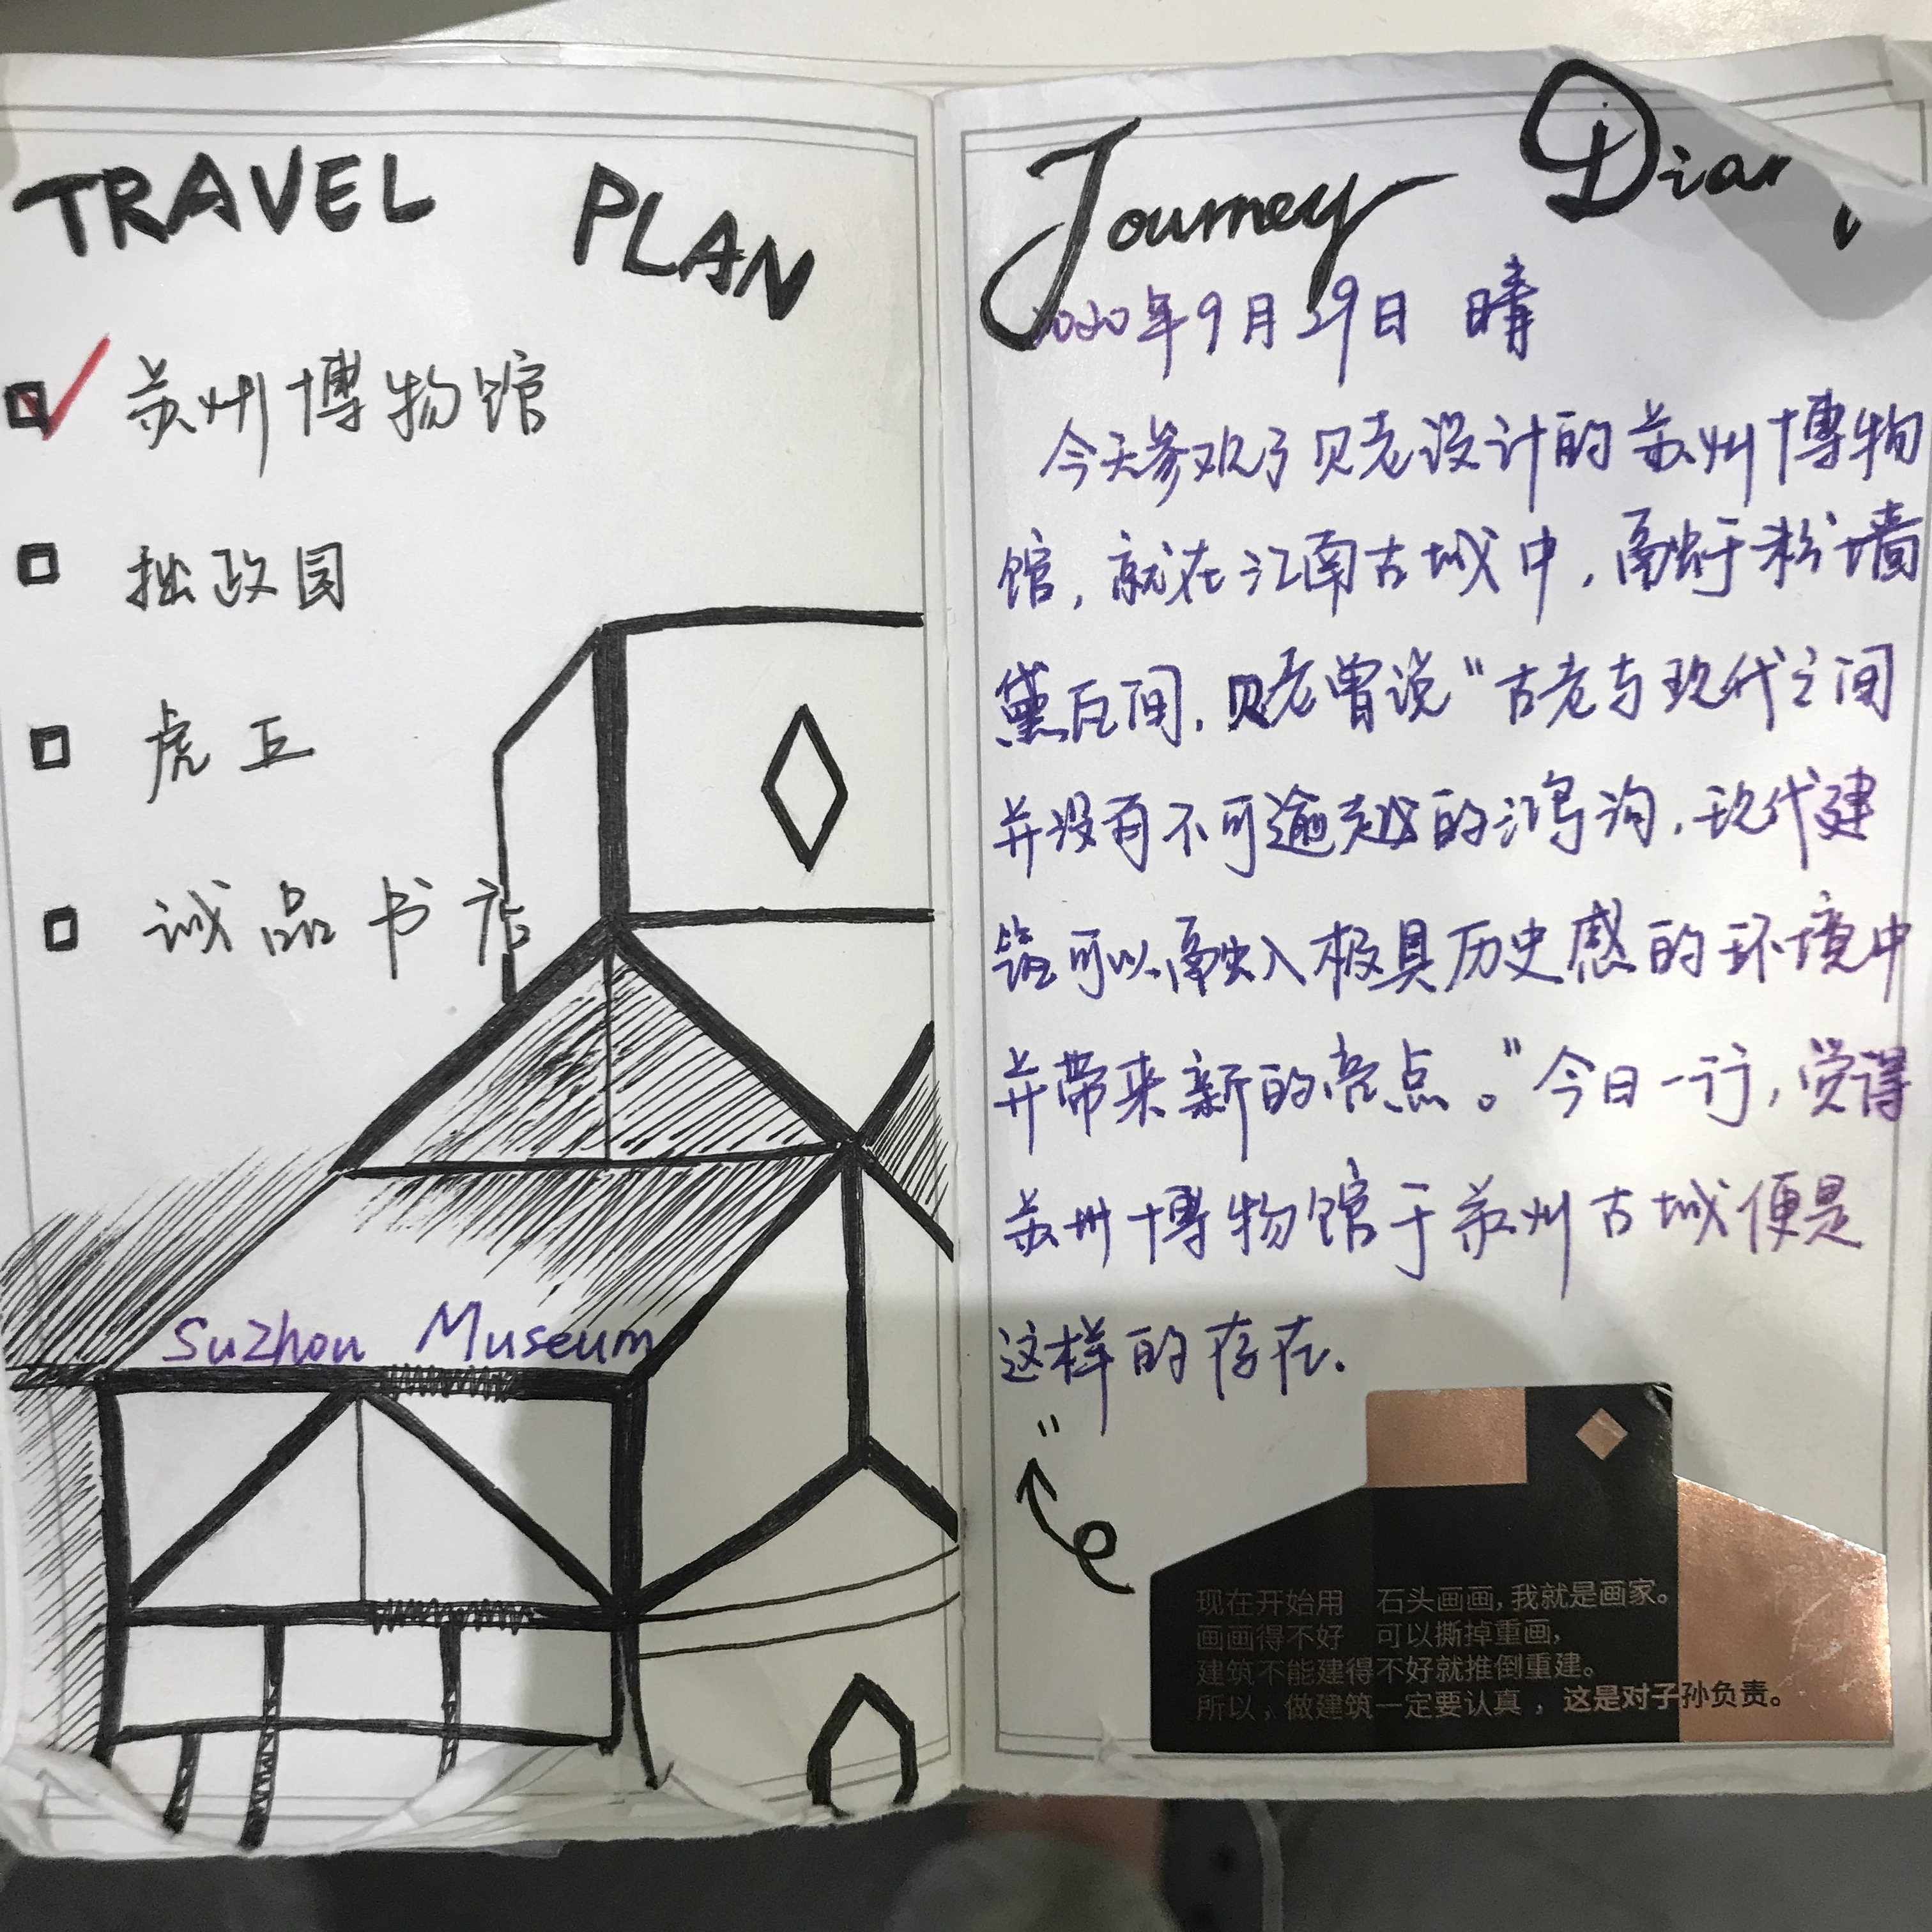 TRAVEL PLAN
苏州博物馆
拙政园
虎丘
诚品书店
Suzhou Museum
Journey Diary
2020年9月29日 晴
今天参观了贝老设计的苏州博物
馆，就在江南古城中，融于粉墙
黛瓦间，贝老曾说“古老与现代之间
并没有不可逾越的鸿沟，现代建
筑可以融入极具历史感的环境中
并带来新的亮点。”今日一行，觉得
苏州博物馆于苏州古城便是
这样的存在.
现在开始用 石头画画，我就是画家。
画画得不好 可以撕掉重画，
建筑不能建得不好就推倒重建。
所以，做建筑一定要认真，这是对子孙负责。